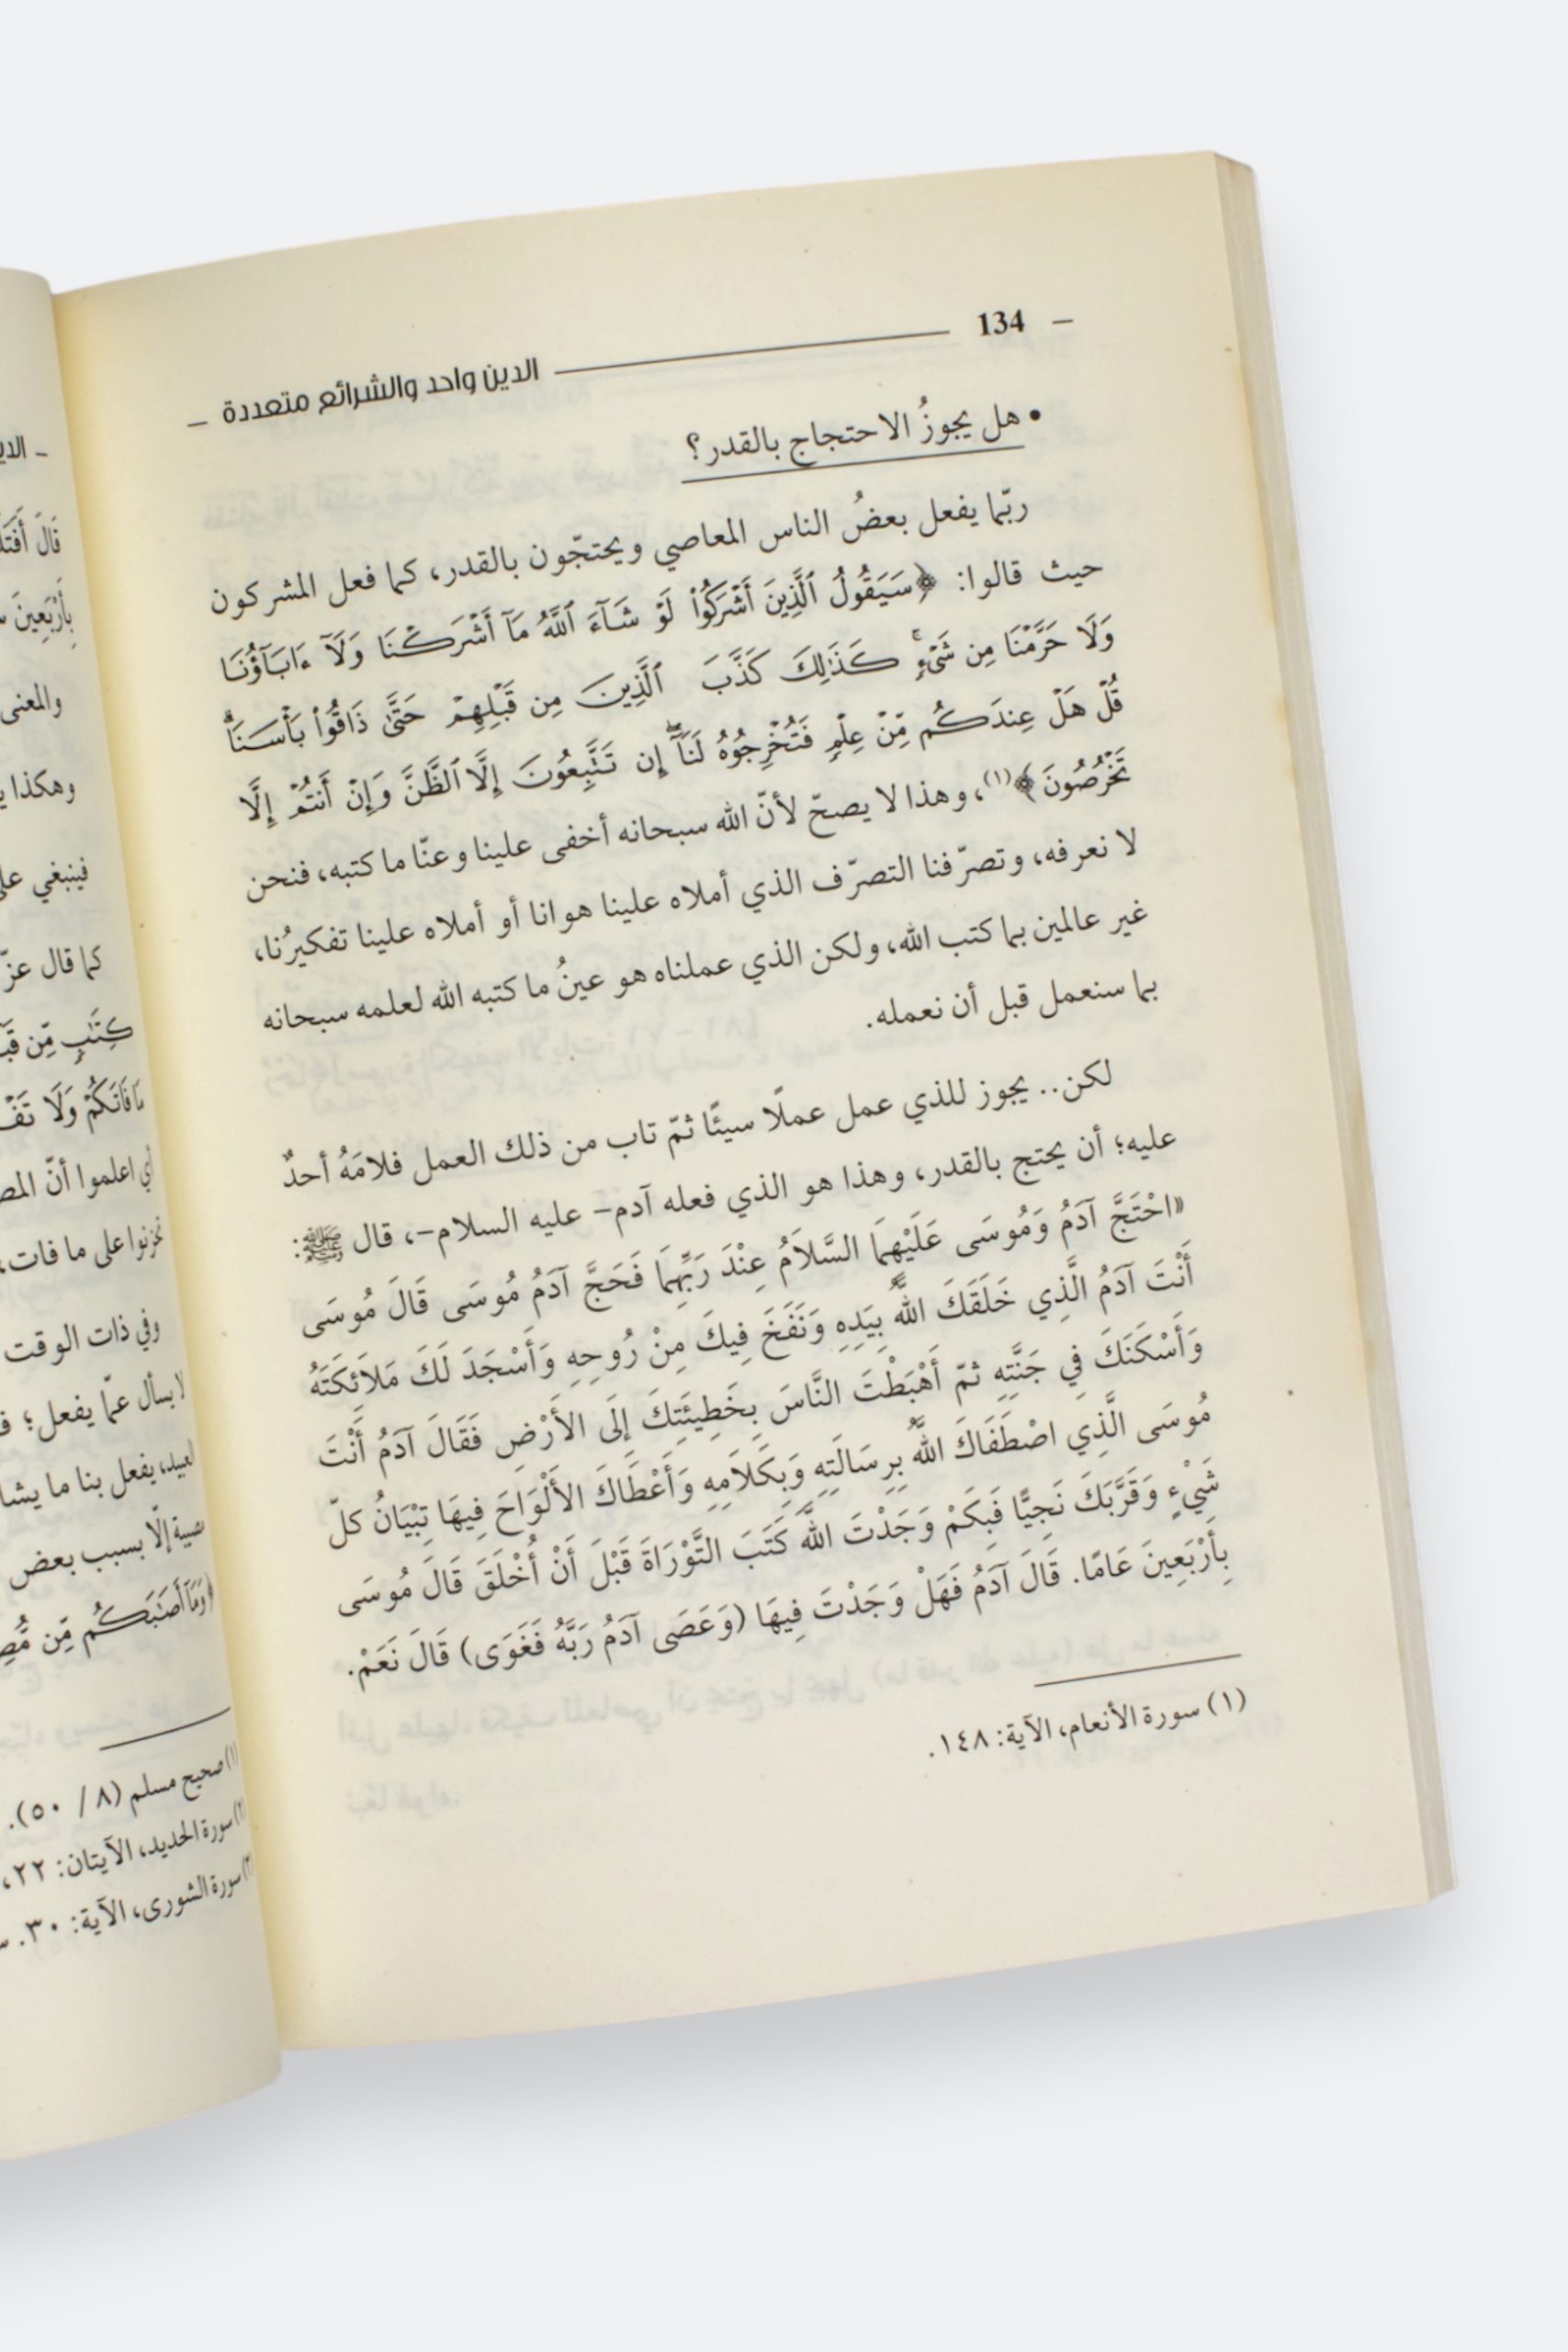 134
الدين واحد والشرائع متعددة
• هل يجوزُ الاحتجاج بالقدر؟
ربّما يفعل بعضُ الناس المعاصي ويحتجّون بالقدر، كما فعل المشركون
حيث قالوا: ﴿سَيَقُولُ ٱلَّذِينَ أَشۡرَكُواْ لَوۡ شَآءَ ٱللَّهُ مَآ أَشۡرَكۡنَا وَلَآ ءَابَآؤُنَا
وَلَا حَرَّمۡنَا مِن شَيۡءٖۚ كَذَٰلِكَ كَذَّبَ ٱلَّذِينَ مِن قَبۡلِهِمۡ حَتَّىٰ ذَاقُواْ بَأۡسَنَاۗ
قُلۡ هَلۡ عِندَكُم مِّنۡ عِلۡمٖ فَتُخۡرِجُوهُ لَنَآۖ إِن تَتَّبِعُونَ إِلَّا ٱلظَّنَّ وَإِنۡ أَنتُمۡ إِلَّا
تَخۡرُصُونَ﴾(١)، وهذا لا يصحّ لأنّ الله سبحانه أخفى علينا وعنّا ما كتبه، فنحن
لا نعرفه، وتصرّفنا التصرّف الذي أملاه علينا هوانا أو أملاه علينا تفكيرُنا،
غير عالمين بما كتب الله، ولكن الذي عملناه هو عينُ ما كتبه الله لعلمه سبحانه
بما سنعمل قبل أن نعمله.
لكن.. يجوز للذي عمل عملًا سيئًا ثمّ تاب من ذلك العمل فلامَهُ أحدٌ
عليه؛ أن يحتج بالقدر، وهذا هو الذي فعله آدم- عليه السلام-، قال ﷺ:
«احْتَجَّ آدَمُ وَمُوسَى عَلَيْهِمَا السَّلاَمُ عِنْدَ رَبِّهِمَا فَحَجَّ آدَمُ مُوسَى قَالَ مُوسَى
أَنْتَ آدَمُ الَّذِي خَلَقَكَ اللَّهُ بِيَدِهِ وَنَفَخَ فِيكَ مِنْ رُوحِهِ وَأَسْجَدَ لَكَ مَلاَئِكَتَهُ
وَأَسْكَنَكَ فِي جَنَّتِهِ ثمّ أَهْبَطْتَ النَّاسَ بِخَطِيئَتِكَ إِلَى الأَرْضِ فَقَالَ آدَمُ أَنْتَ
مُوسَى الَّذِي اصْطَفَاكَ اللَّهُ بِرِسَالَتِهِ وَبِكَلاَمِهِ وَأَعْطَاكَ الأَلْوَاحَ فِيهَا تِبْيَانُ كلّ
شَيْءٍ وَقَرَّبَكَ نَجِيًّا فَبِكَمْ وَجَدْتَ اللَّهَ كَتَبَ التَّوْرَاةَ قَبْلَ أَنْ أُخْلَقَ قَالَ مُوسَى
بِأَرْبَعِينَ عَامًا. قَالَ آدَمُ فَهَلْ وَجَدْتَ فِيهَا (وَعَصَى آدَمُ رَبَّهُ فَغَوَى) قَالَ نَعَمْ.
(١) سورة الأنعام، الآية: ١٤٨.
قَالَ
بِأَرْبَعِينَ
والمعنى
وهكذا
فينبغي
كما قال عزّ
كِتَٰبٖ مِّن
وَلَا
اعلموا أنّ
على ما فات،
وفي ذات الوقت
يسأل عمّا يفعل؛
يفعل بنا ما
إلّا بسبب بعض
أَصَٰبَكُم مِّن
(١) صحيح مسلم (٨ / ٥٠).
سورة الحديد، الآيتان: ٢٢،
سورة الشورى، الآية: ٣٠.